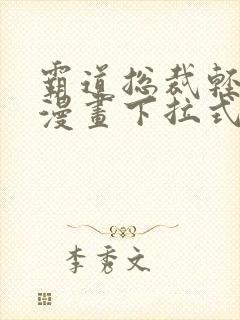 霸道总裁輕
漫畫下拉式
李秀文